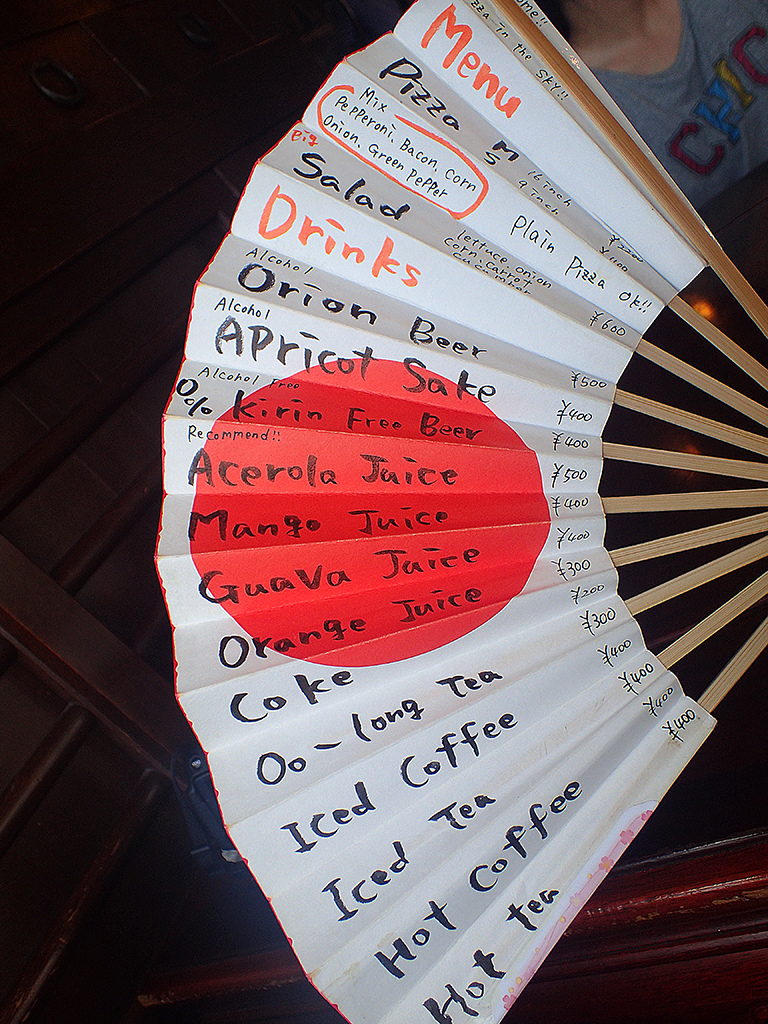 in the SKY!!
Menu
Pizza M 16 inch
S 9 inch
Mix
Pepperoni, Bacon, Corn
Onion, Green Pepper
Plain Pizza ok!!
Big
Salad lettuce, onion
corn, carrot
cucumber ¥600
Drinks
Alcohol
Orion Beer ¥500
Alcohol
Apricot Sake ¥400
Alcohol Free
0% Kirin Free Beer ¥400
Recommend!!
Acerola Juice ¥500
Mango Juice ¥400
Guava Juice ¥400
Orange Juice ¥300
Coke ¥200
Oo-long Tea ¥300
Iced Coffee ¥400
Iced Tea ¥400
Hot Coffee ¥400
Hot tea ¥400
CHIC